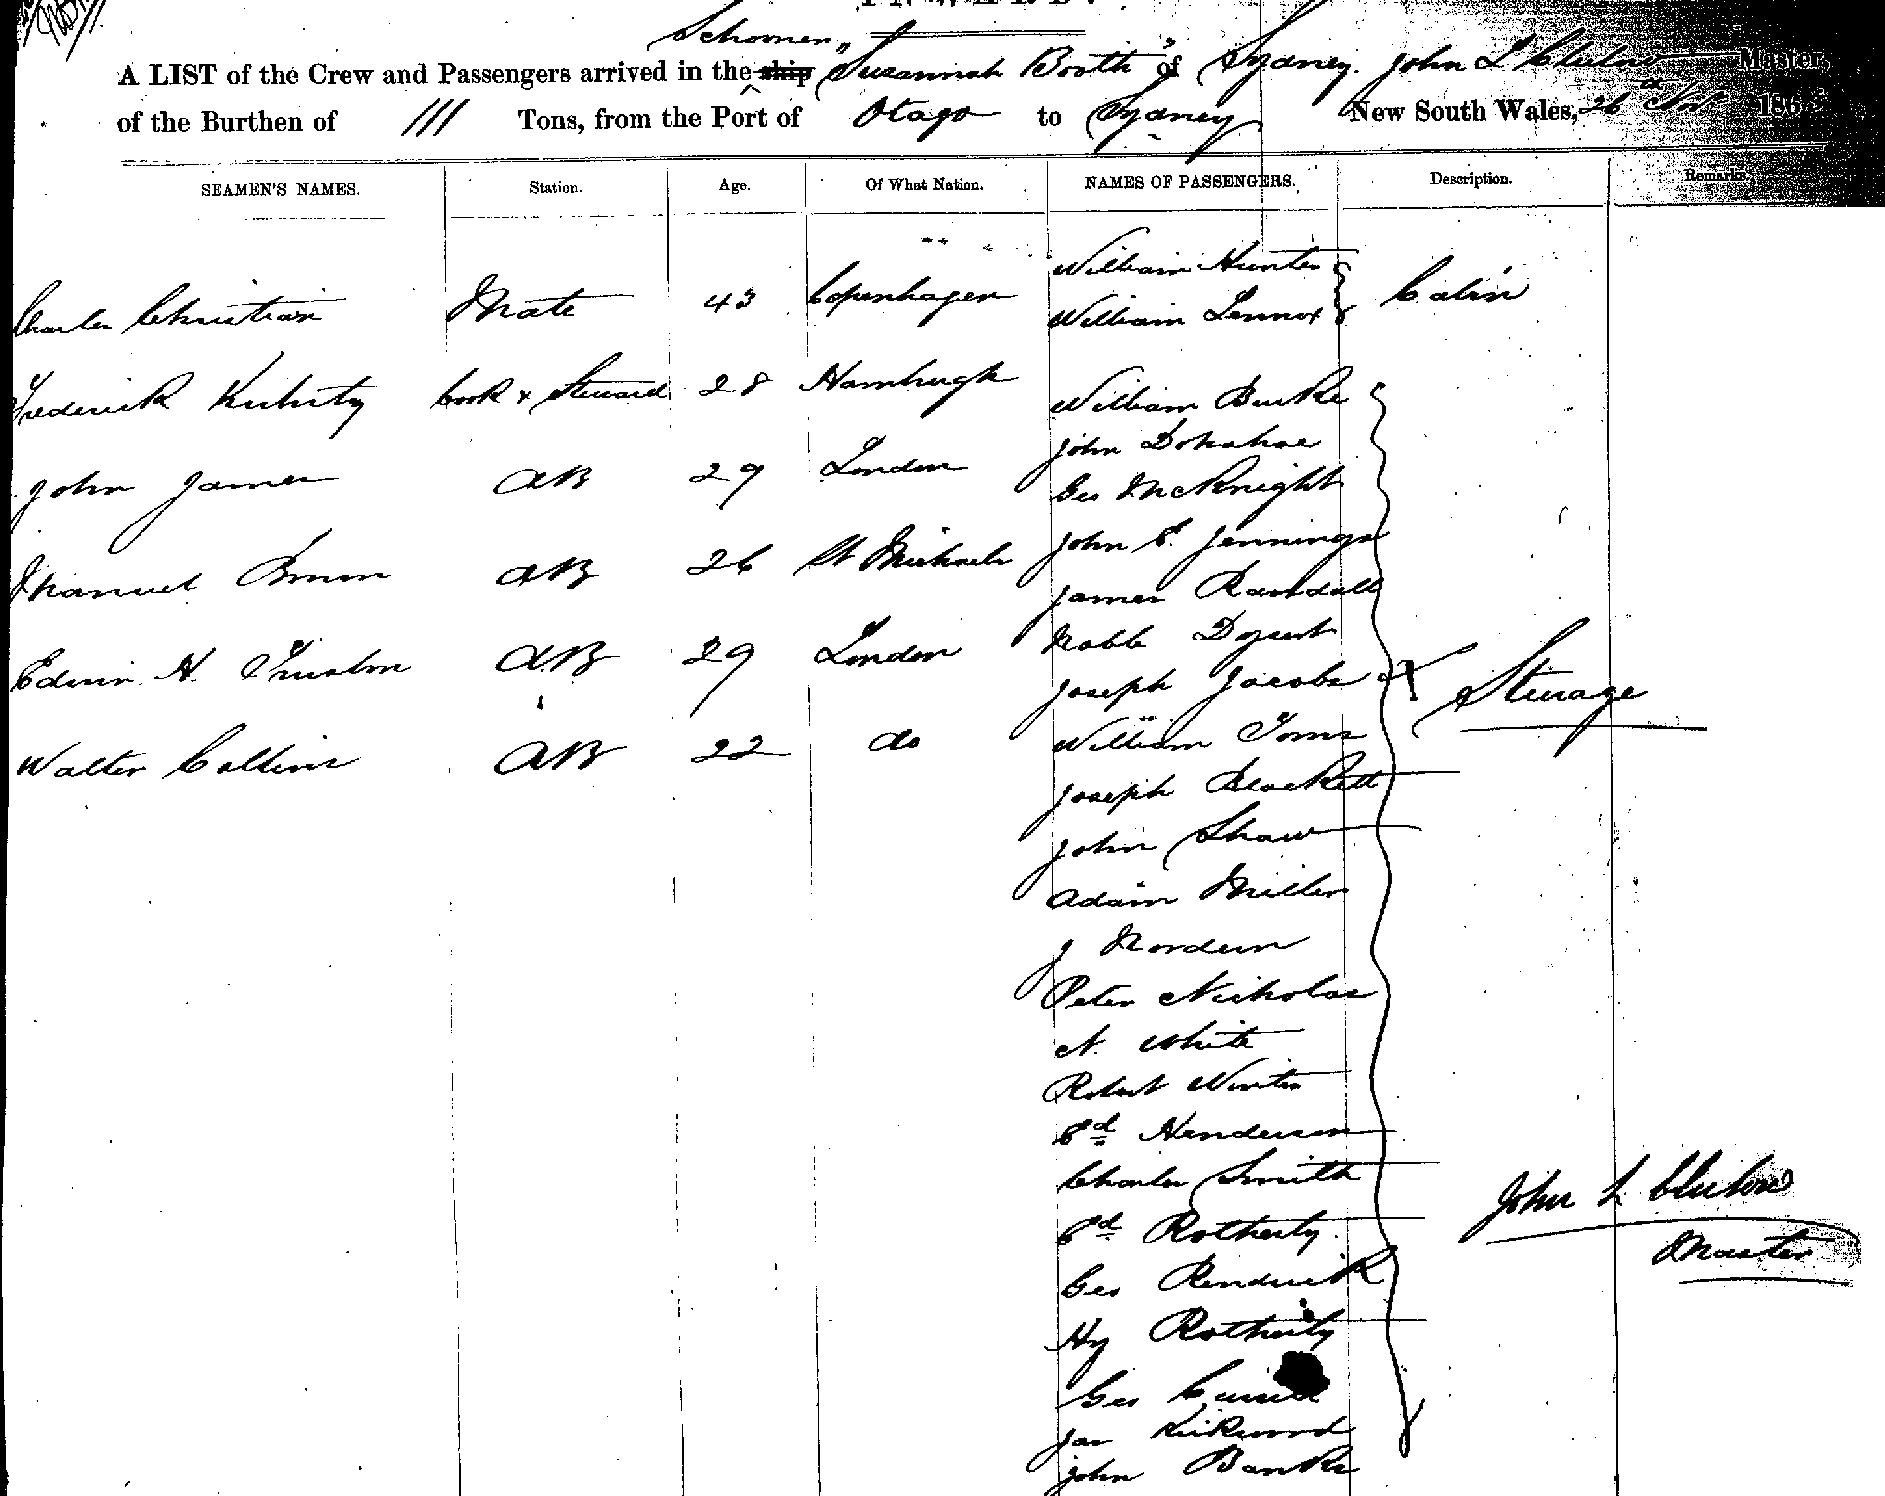 INWARD.
Schooner
A LIST of the Crew and Passengers arrived in the ship "Susannah Booth" of Sydney. John L Clulow Master,
of the Burthen of 111 Tons, from the Port of Otago to Sydney New South Wales, 26th Nov 186
SEAMEN'S NAMES. Station. Age. Of What Nation. NAMES OF PASSENGERS. Description. Remarks.
William Hunter
Charles Christian Mate 43 Copenhagen William Lennox Cabin
Frederick Cook & Steward 28 Hamburgh William Burke
John Donahoe
John James AB 29 London Geo McKnight
John E. Jennings
Manuel Brown AB 26 St Michaels James Randall
Noble
Edwin H. AB 29 London Joseph Jacobs Steerage
William Toms
Walter Collins AB 22 do Joseph Blackett
John Shaw
Adam Miller
J Nordern
Peter Nicholas
N. White
Robert Winter
Ed Henderson
Charles Smith
John L Clulow
Ed Rotherty.
Master
Geo Renduick
Hy Rotherty
Geo
Jas Kirkwood
John Banks